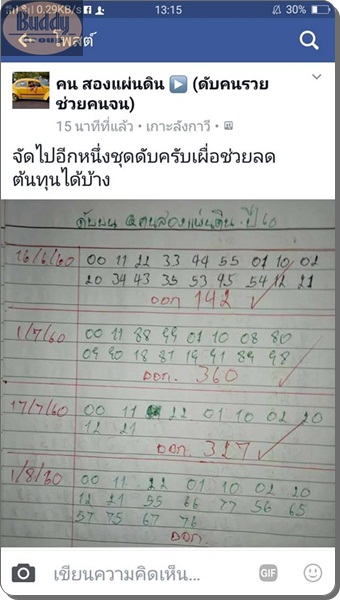 0.29KB/s 13:15 30%
Buddy
Group
โพสต์
คน สองแผ่นดิน ▶ (ดับคนรวย
ช่วยคนจน)
15 นาทีที่แล้ว • เกาะลังกาวี •
จัดไปอีกหนึ่งชุดดับครับเผื่อช่วยลด
ต้นทุนได้บ้าง
ดับบน คนสองแผ่นดิน ปี 60
16/6/60 00 11 22 33 44 55 01 10 02
20 34 43 35 53 45 54 12 21
ออก 142
1/7/60 00 11 88 99 01 10 08 80
09 90 18 81 19 91 89 98
ออก. 360
17/7/60 00 11 22 01 10 02 20
12 21
ออก. 327
1/8/60 00 11 22 01 10 02 20
12 21 55 66 77 56 65
57 75 67 76
ออก.
เขียนความคิดเห็น... GIF